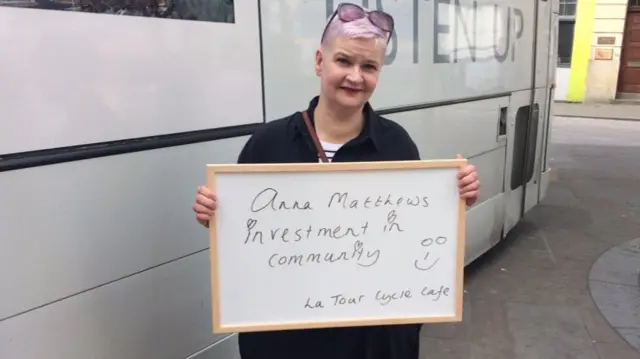 LISTEN UP
Anna Matthews
investment in
community
La Tour Cycle Cafe